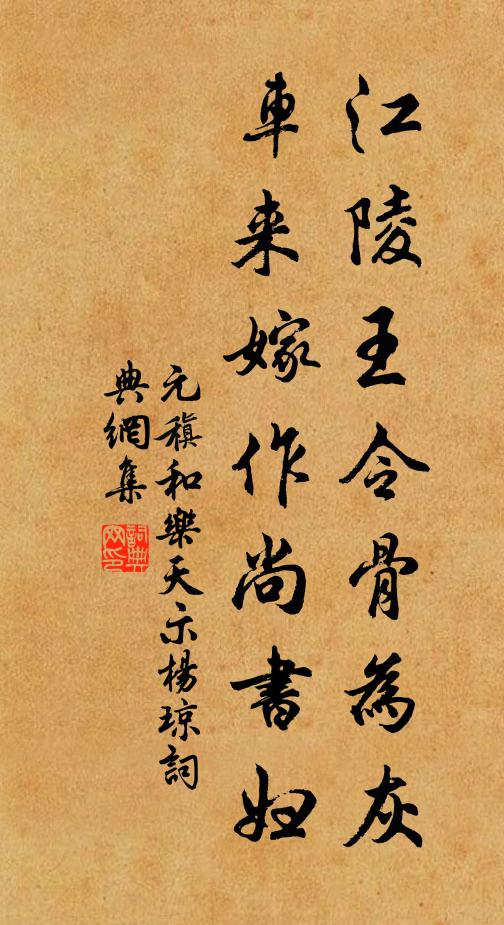 江陵王令骨為灰
車来嫁作尚書婦
元稹和樂天示楊瓊詞
典網集
詞典网印